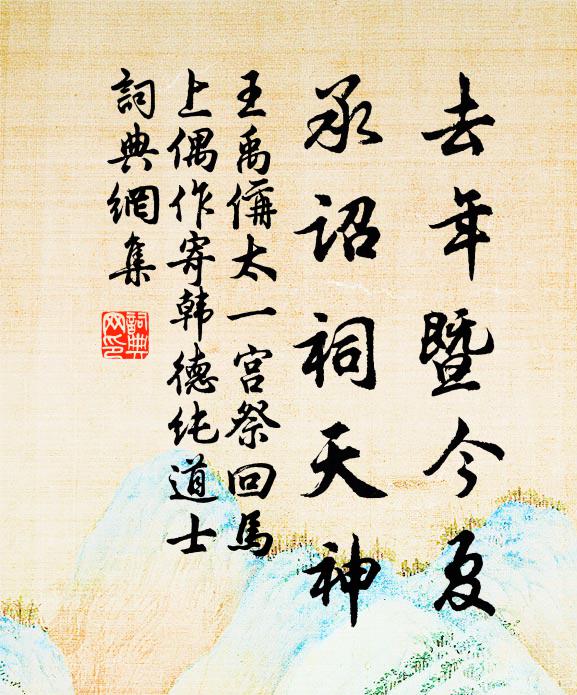 去年暨今夏
承詔祠天神
王禹偁太一宮祭回馬
上偶作寄韩德纯道士
詞典網集
詞典網印